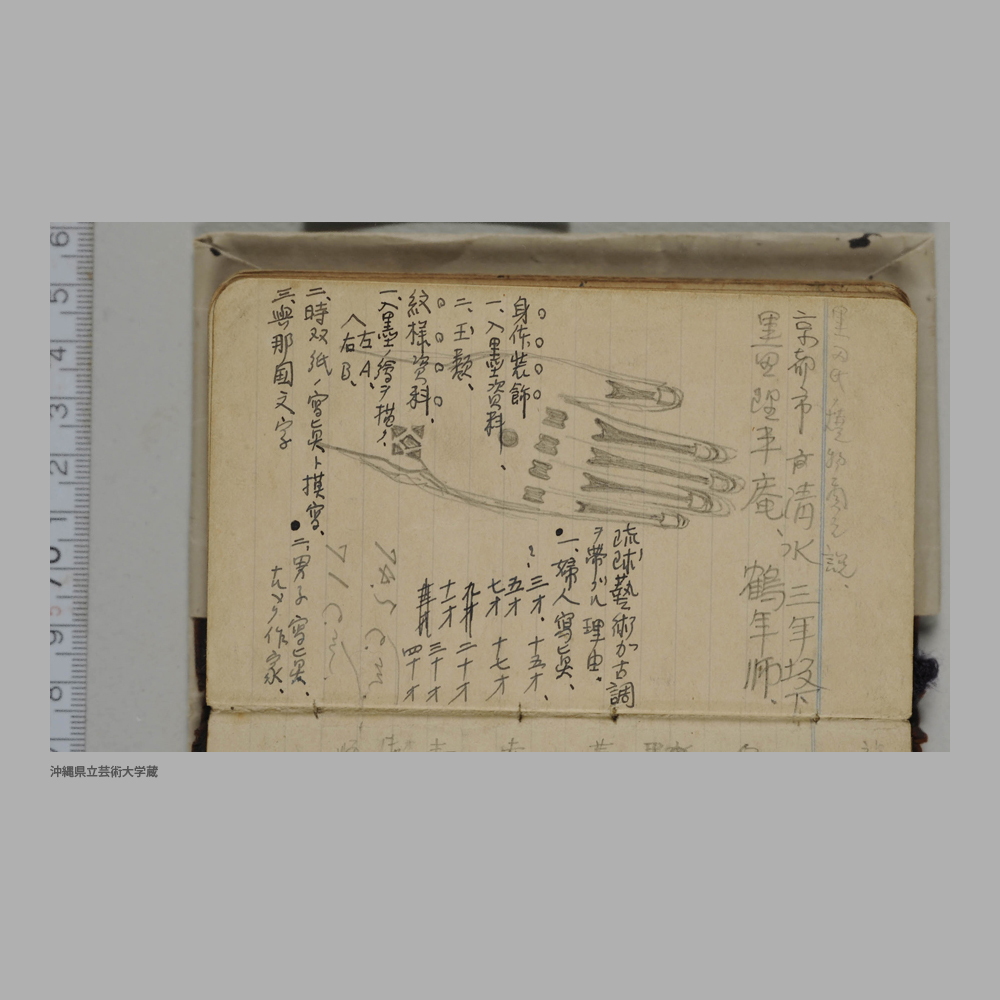 京都市 清水 三年坂下
黒田理平庵 鶴年師、
琉球藝術ガ古調
ヲ帯ブル理由、
一、婦人寫眞、
三才、十五才、
五才
七才 十七才
二十才
十一才
三十才
四十才
二、男子寫眞、
作家、
身体装飾
一、入墨資料、
二、玉類、
紋様資料、
一、入墨ノ繪ヲ描ク、
左A、
右B、
二、時双紙ノ寫眞ト摸寫、
三、與那国文字
74.5 c.m.
71 c.m.
6
5
4
3
2
1
0
9
8
沖縄県立芸術大学蔵